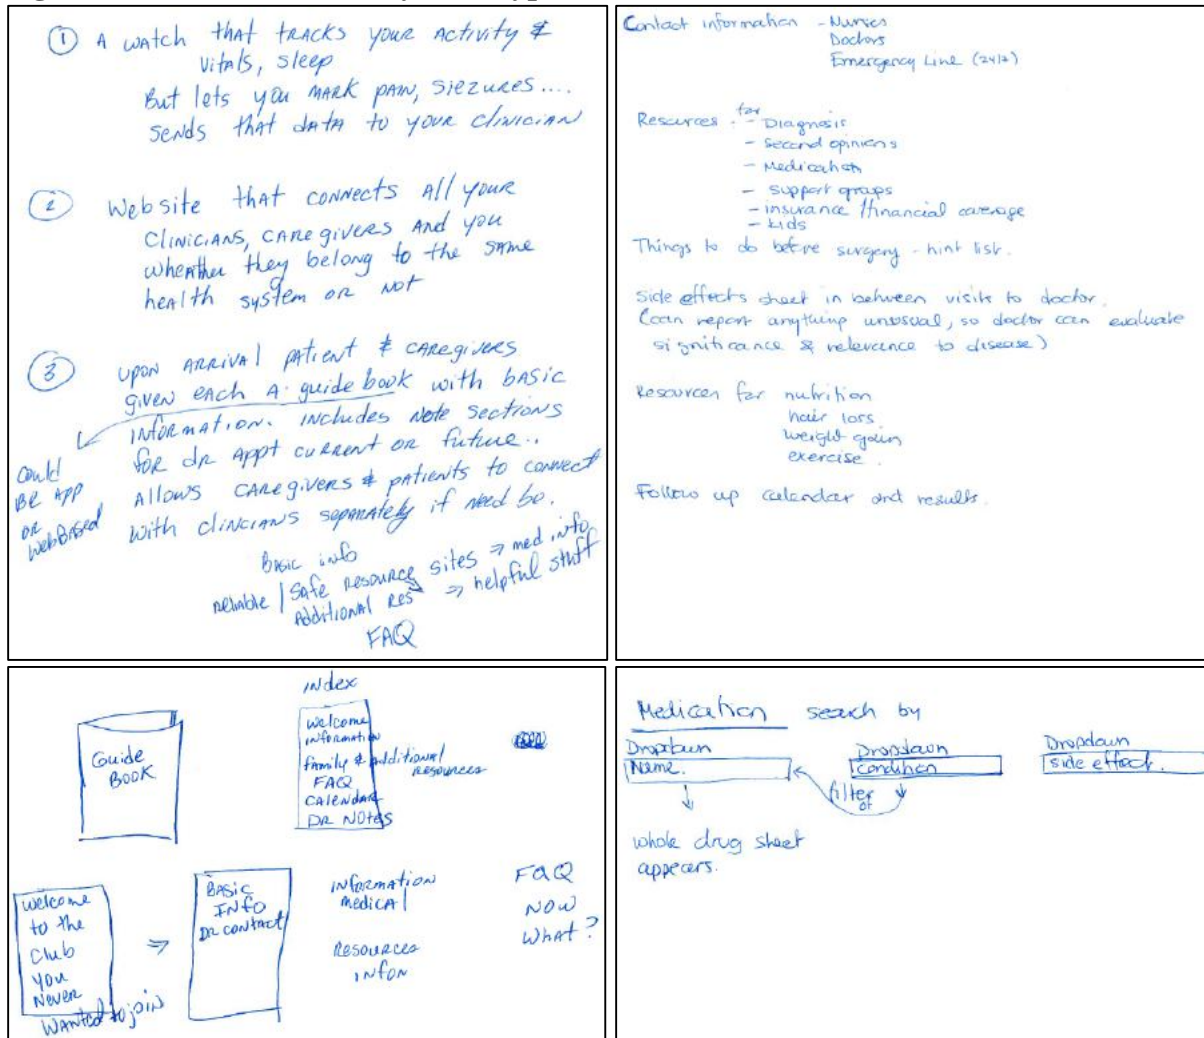 ① A watch that tracks your activity &
vitals, sleep
But lets you mark pain, siezures....
sends that data to your clinician
② Website that connects all your
clinicians, caregivers and you
wheather they belong to the same
health system or not
③ upon arrival patient & caregivers
given each a guide book with basic
information. includes note sections
for dr appt current or future..
allows caregivers & patients to connect
with clinicians separately if need be.
could
be app
or
webBased
Basic info
reliable / safe resource sites ⇒ med info
additional res ⇒ helpful stuff
FAQ
Contact information - Nurses
Doctors
Emergency Line (24/7)
Resources for
- Diagnosis
- second opinions
- Medication
- support groups
- insurance / financial coverage
- kids
Things to do before surgery - hint list.
Side effects sheet in between visits to doctor.
(can report anything unusual, so doctor can evaluate
significance & relevance to disease)
Resources for nutrition
hair loss
weight gain
exercise.
Follow up calendar and results.
Guide
Book
index
welcome
information
family & additional
resources
FAQ
Calendar
Dr Notes
welcome
to the
club
you
never
wanted to join
⇒
Basic
Info
Dr contact
information
medical
resources
FAQ
Now
What?
Medication search by
Dropdown
Name.
Dropdown
condition
Dropdown
side effect.
filter
of
whole drug sheet
appears.